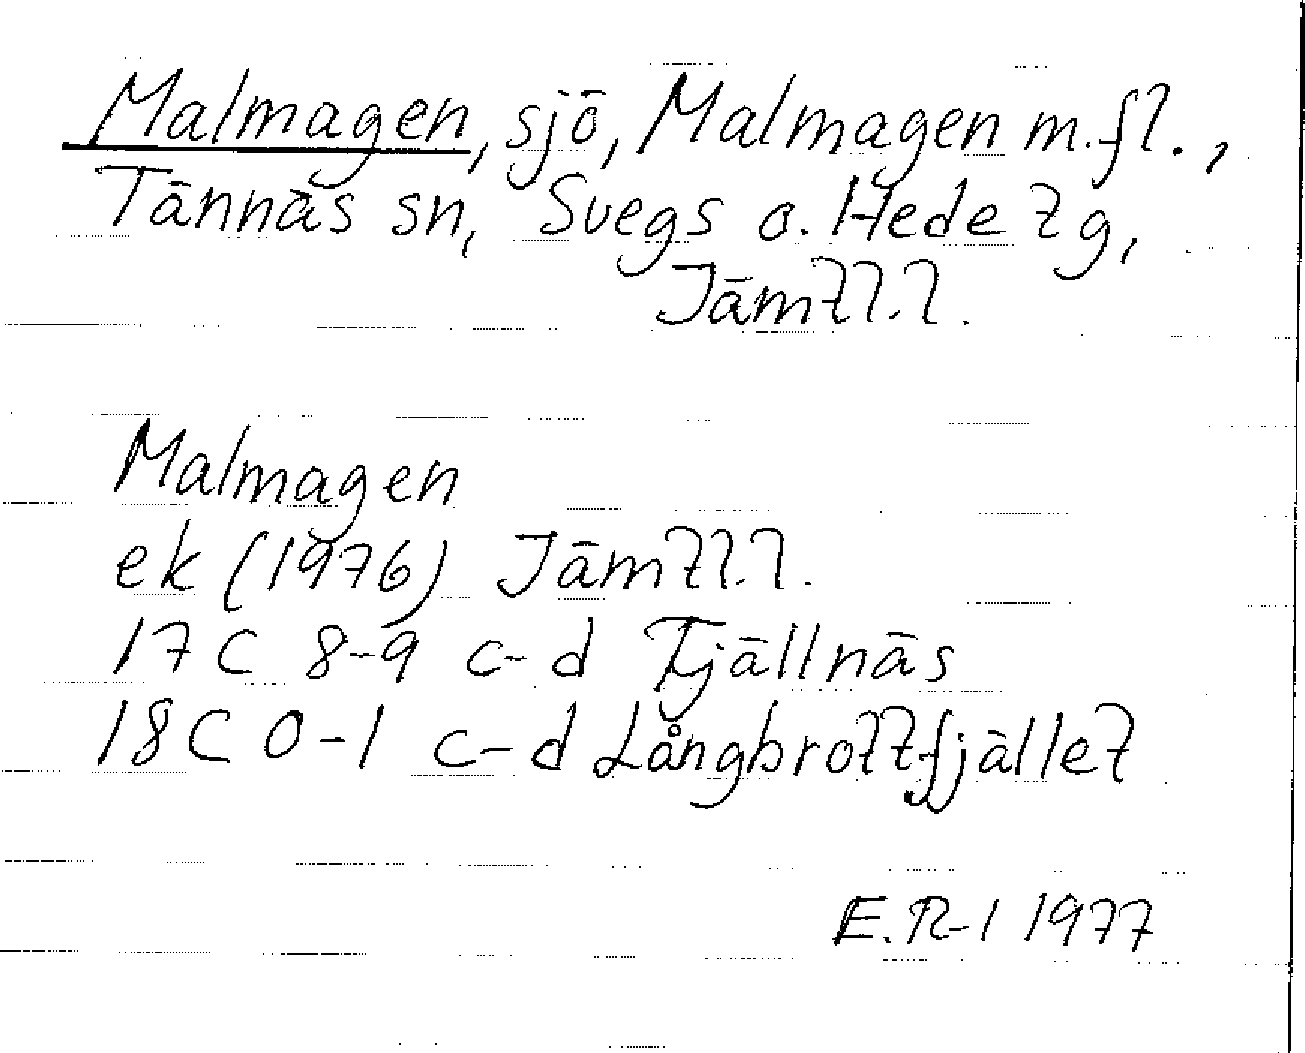 Malmagen, sjö, Malmagen m.fl.,
Tännäs sn, Svegs o. Hede tg,
Jämtl.l.
Malmagen
ek (1976) Jämtl.l.
17C 8-9 c-d Fjällnäs
18C 0-1 c-d Långbrottfjället
E.R-l 1977